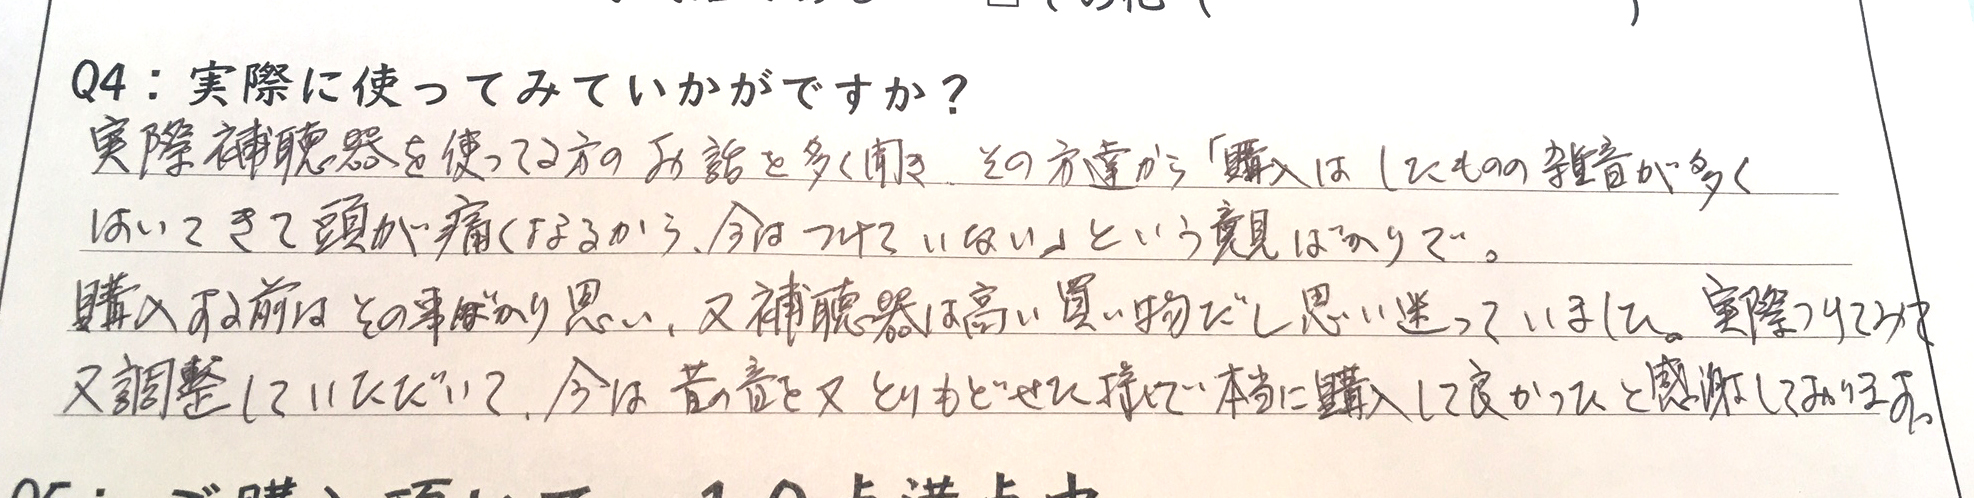 Q4：実際に使ってみていかがですか？
実際補聴器を使ってる方のお話を多く聞き、その方達から「購入はしたものの雑音が多く
はいてきて頭が痛くなるから、今はつけていない」という意見ばかりで。
購入する前はその事ばかり思い、又補聴器は高い買い物だし思い迷っていました。実際つけてみて
又調整していただいて、今は昔の音を又とりもどせた様で本当に購入して良かったと感謝しております。